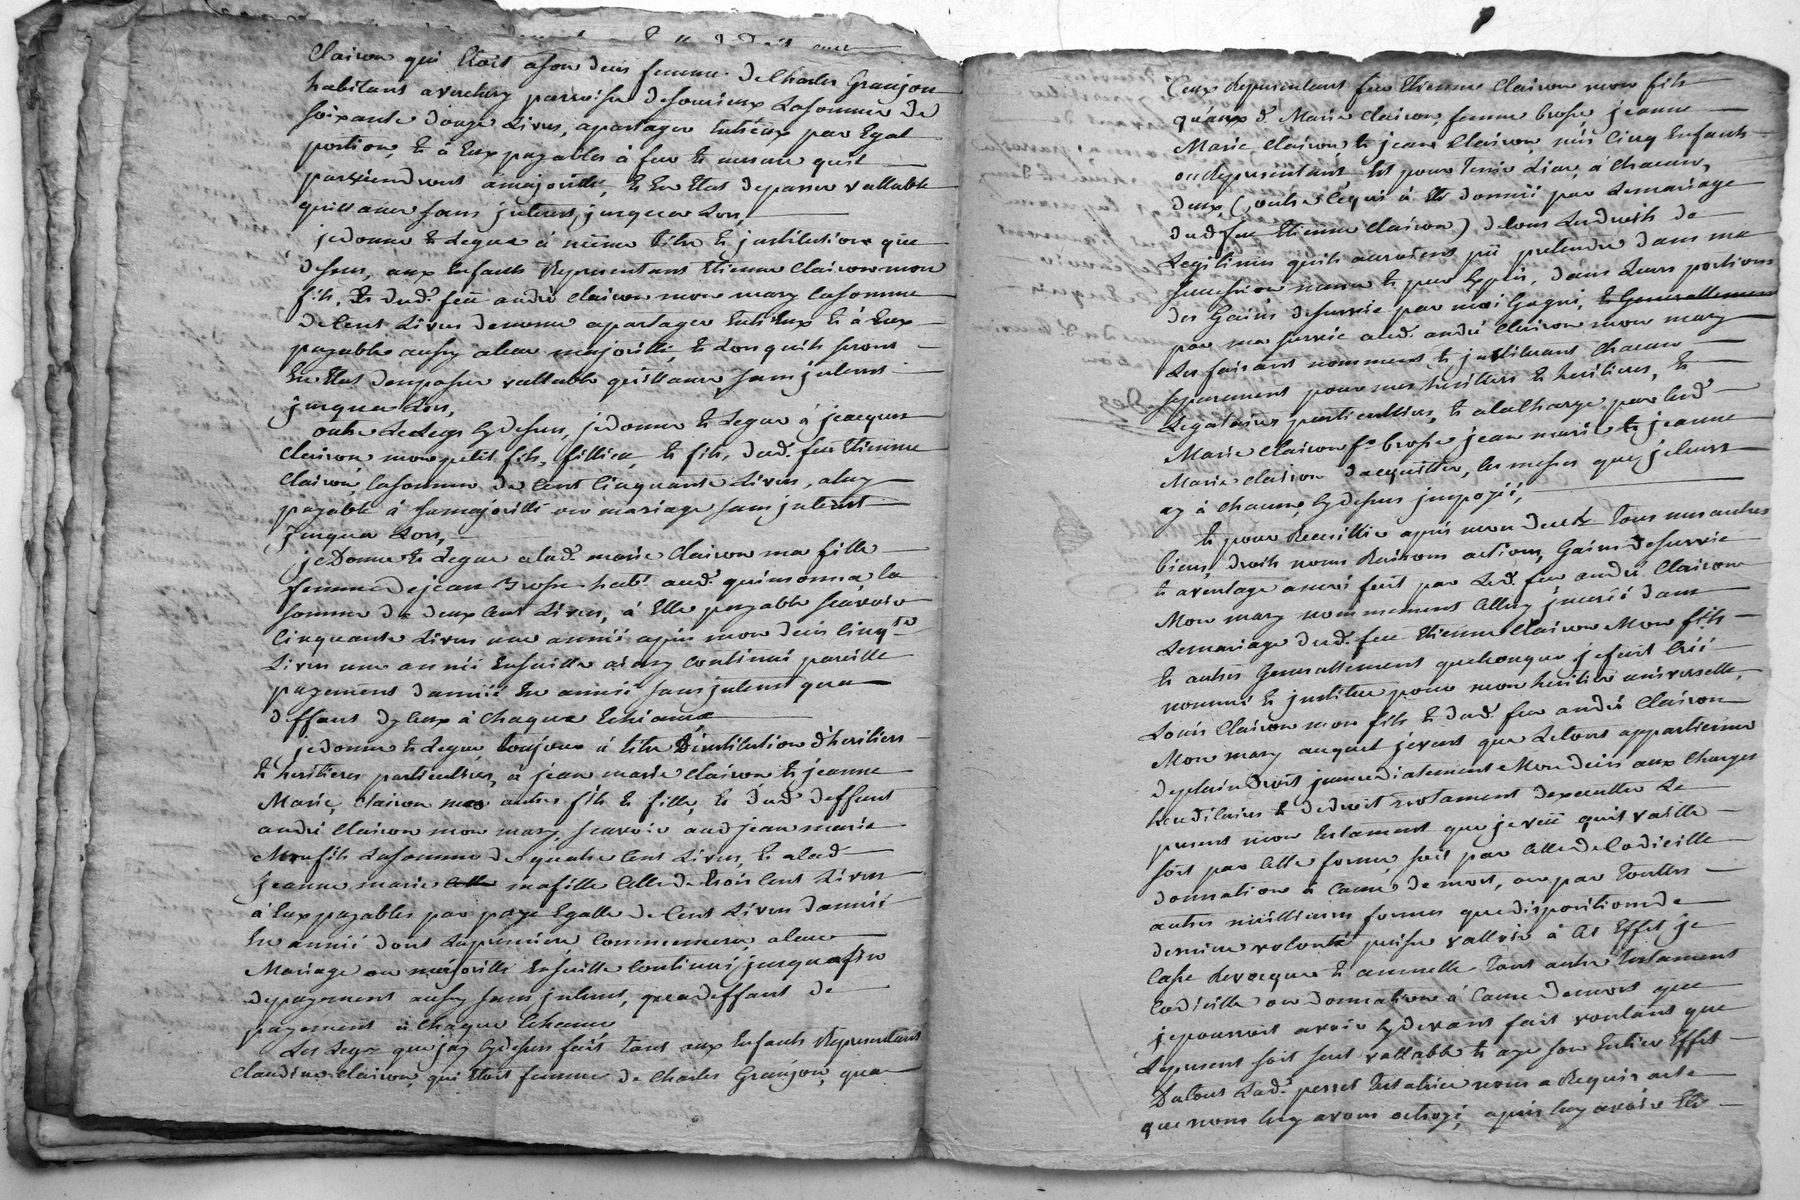 Clairon qui Etoit a son deces femme de Charles Granjon
habitans a verchery parroisse de soucieux La somme de
soixante douze Livres, a partager entr'eux par Egal
portion, et à Eux payables à fur et mesure quil
parviendront a majoritté, et En Etat de passer vallable
quittance sans jnterest jusques Lors,
je donne et Legue à même titre et jnstitution que
dessus, aux Enfants Representans Etienne Clairon mon
fils, Et dud. feü andré Clairon mon mary la somme
de Cent Livres de meme a partager Entr'Eux et à Eux
payable aussy a leur majoritté, et Lors quils seront
En Etat d'en passer vallable quittance sans jnterest
jusques Lors,
outre Le Legs Cy dessus, je donne et Legue à jacques
Clairon mon petit fils, fillieu, et fils, dud. feu Etienne
Clairon, la somme de Cent Cinquante Livres, a luy
payable à sa majoritté ou mariage sans jnterest
jusques Lors,
je Donne et Legue a lad. marie Clairon ma fille
femme de jean Brosse habt. aud. quinsonna, la
somme de deux Cent Livres, à Elle payable scavoir
Cinquante Livres une année apres mon deces Cinqte
Livres une année Ensuitte ainsy Continué pareille
payement d'année En année sans jnterest qua
deffaut dyceux à chaque Echeance
je donne et Legue toujours à titre D'institution d'heritiers
et heritieres particulieres, à jean marie Clairon et jeanne
Marie, Clairon mes autres fils et fille, et dud. deffunt
andré Clairon mon mary, scavoir aud jean marie
Mon fils La somme de quatre Cent Livres, et a lad
jeanne marie Celle ma fille Celle de trois Cent Livres
à Eux payables par paye Egalle de Cent Livres d'année
En année dont La premiere Commencera, a leur
Mariage ou majoritté Ensuitte Continué jusqu'a fin
de payement aussy sans jnterest, qu'a deffaut de
payement à chaque Echeance
Les Legs que jay Cy dessus fait tant aux Enfants Representans
Claudine Clairon, qui Etoit femme de Charles Granjon, qua
Ceux Representans feu Etienne Clairon mon fils
qu'aux d. Marie Clairon femme brosse, jeanne
Marie Clairon et jean Clairon mes Cinq Enfants
ou Representans Est pour tenir Lieu, à chacun,
deux, (outre Ce qui à Eté donné par Le mariage
dud. feu Etienne Clairon) de tous Les droits de
Legitimes quils auroient pü pretendre dans ma
succession meme et par Exprès, dans Leurs portions
des Gains de survie par moi Gagné, et Generallement
par ma survie aud. andré Clairon mon mary
Les faisant nommant et jnstituant chacun
separement pour mes heritiers et heritieres, et
Legataires particulliers, et a la Charge par lesd
Marie Clairon fe brosse jean marie et jeanne
Marie Clairon d'acquitter, les messes que je leurs
ay à chacune Cy dessus jmposé,
et pour Recuillir apres mon deces tous mes autres
biens, droits noms Raisons actions, Gains de survie
et aventage a moi fait par Led. feu andré Clairon
Mon mary nommement Celluy jnseré dans
Le mariage dud. feu Etienne Clairon Mon fils
et autres Generallement quelconque je fait Créé
nommé et jnstitue pour mon heritier universelle,
Louis Clairon mon fils et dud. feu andré Clairon
Mon mary auquel je veut que Le tout appartienne
de plein droit jmmediatement Mon deces aux Charges
hereditaires et de droit notament d'executter Le
present mon testament que je veü quil vaille
soit par Cette forme soit par Celle de Codicille
donnation à Cause de mort, ou par touttes
autres meilleures formes que disposition de
derniere volonté puisse valloir à Cet Effet je
Casse Revocque et annulle tout autre testament
Codicille ou donnation à Cause de mort que
je pourroit avoir Cy devant fait voulant que
Le present soit seul vallable et aye son Entier Effet
Du tout Lad. perret testatrice nous a Requis acte
que nous luy avons octroyé, apres luy avoir Eté